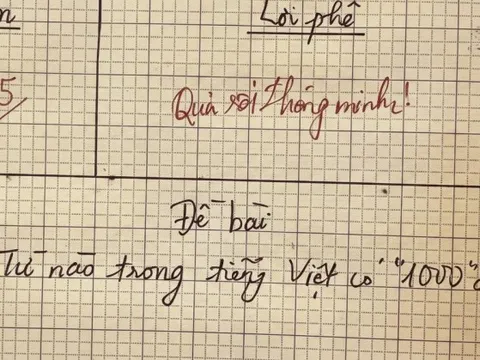 Lời phê
5
Quá rồi thông minh!
Đề bài
Từ nào trong tiếng Việt có "1000"